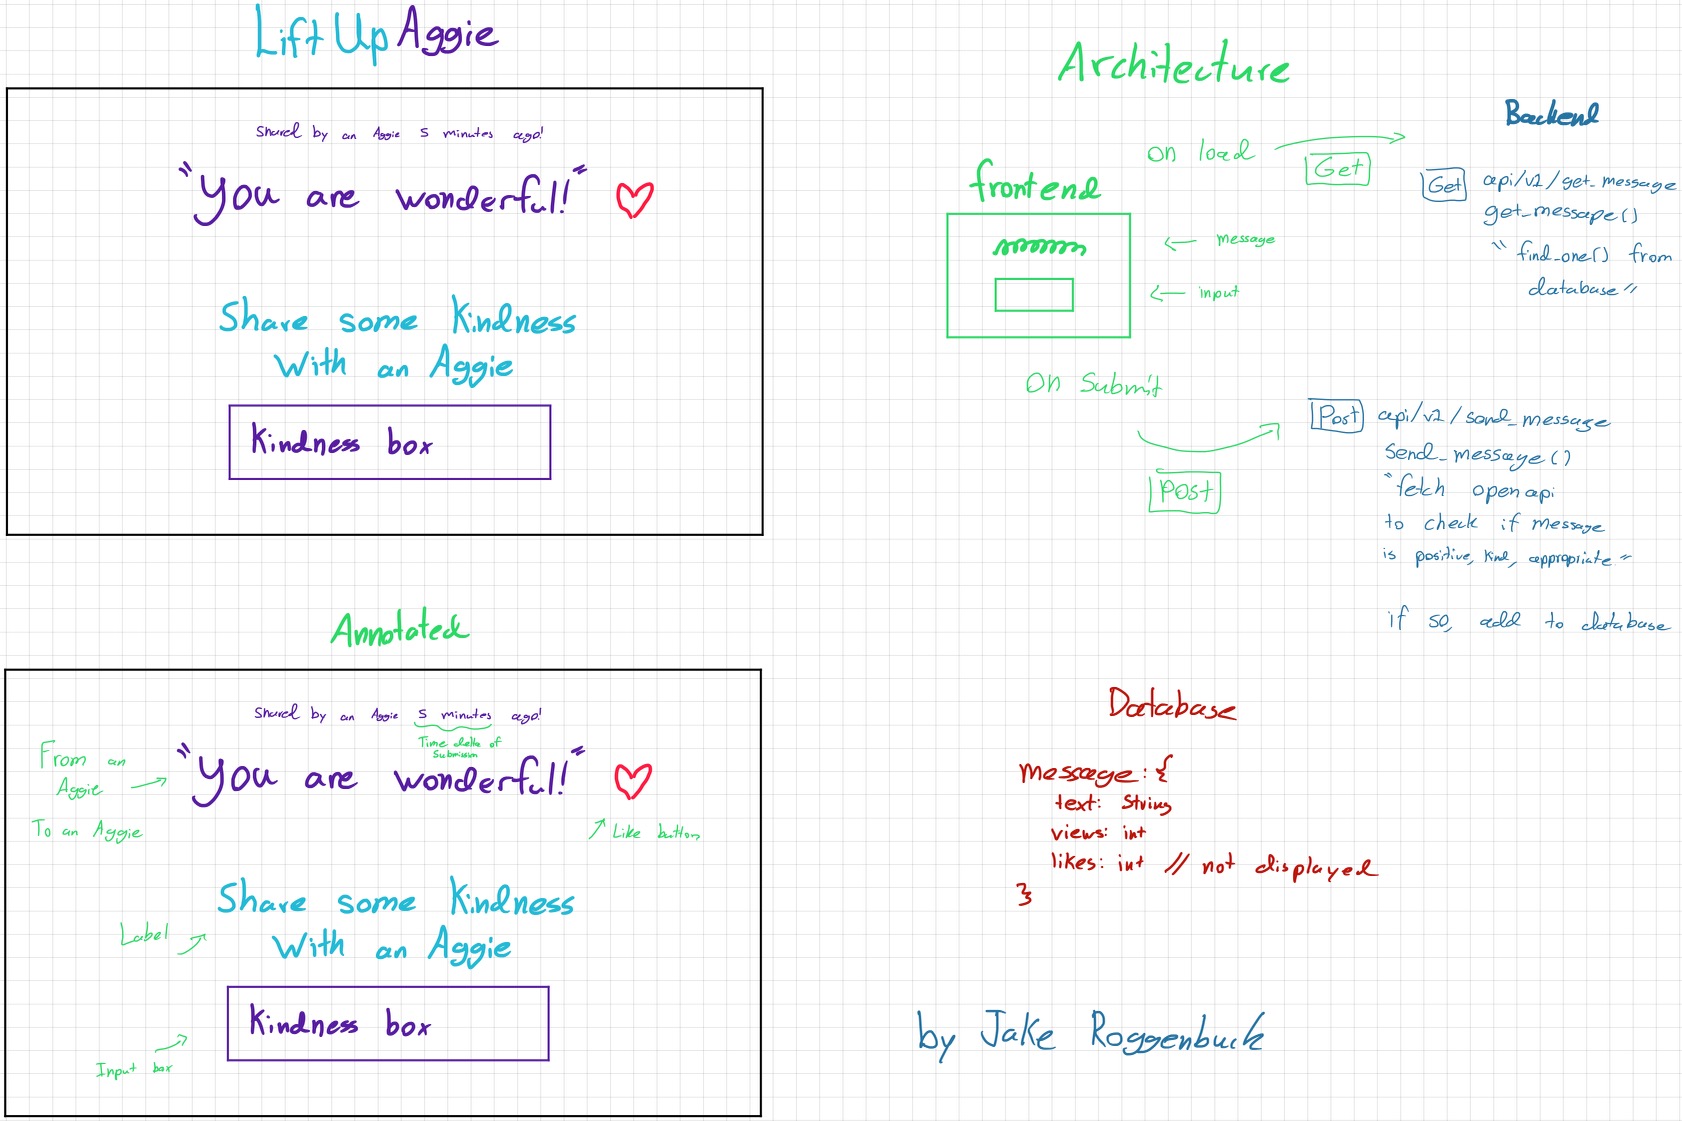 Lift Up Aggie
Shared by an Aggie 5 minutes ago!
"You are wonderful!"
Share some Kindness
With an Aggie
Kindness box
Annotated
Shared by an Aggie 5 minutes ago!
Time delta of
Submission
From an
Aggie
To an Aggie
"You are wonderful!"
Like button
Share some Kindness
With an Aggie
Label
Kindness box
Input box
Architecture
frontend
message
input
On load
Get
On Submit
Post
Backend
Get api/v1/get_message
get_message()
"find_one() from
database"
Post api/v1/send_message
send_message()
"fetch openapi
to check if message
is positive, kind, appropriate"
if so, add to database
Database
message: {
text: String
views: int
likes: int // not displayed
}
by Jake Roggenbuck